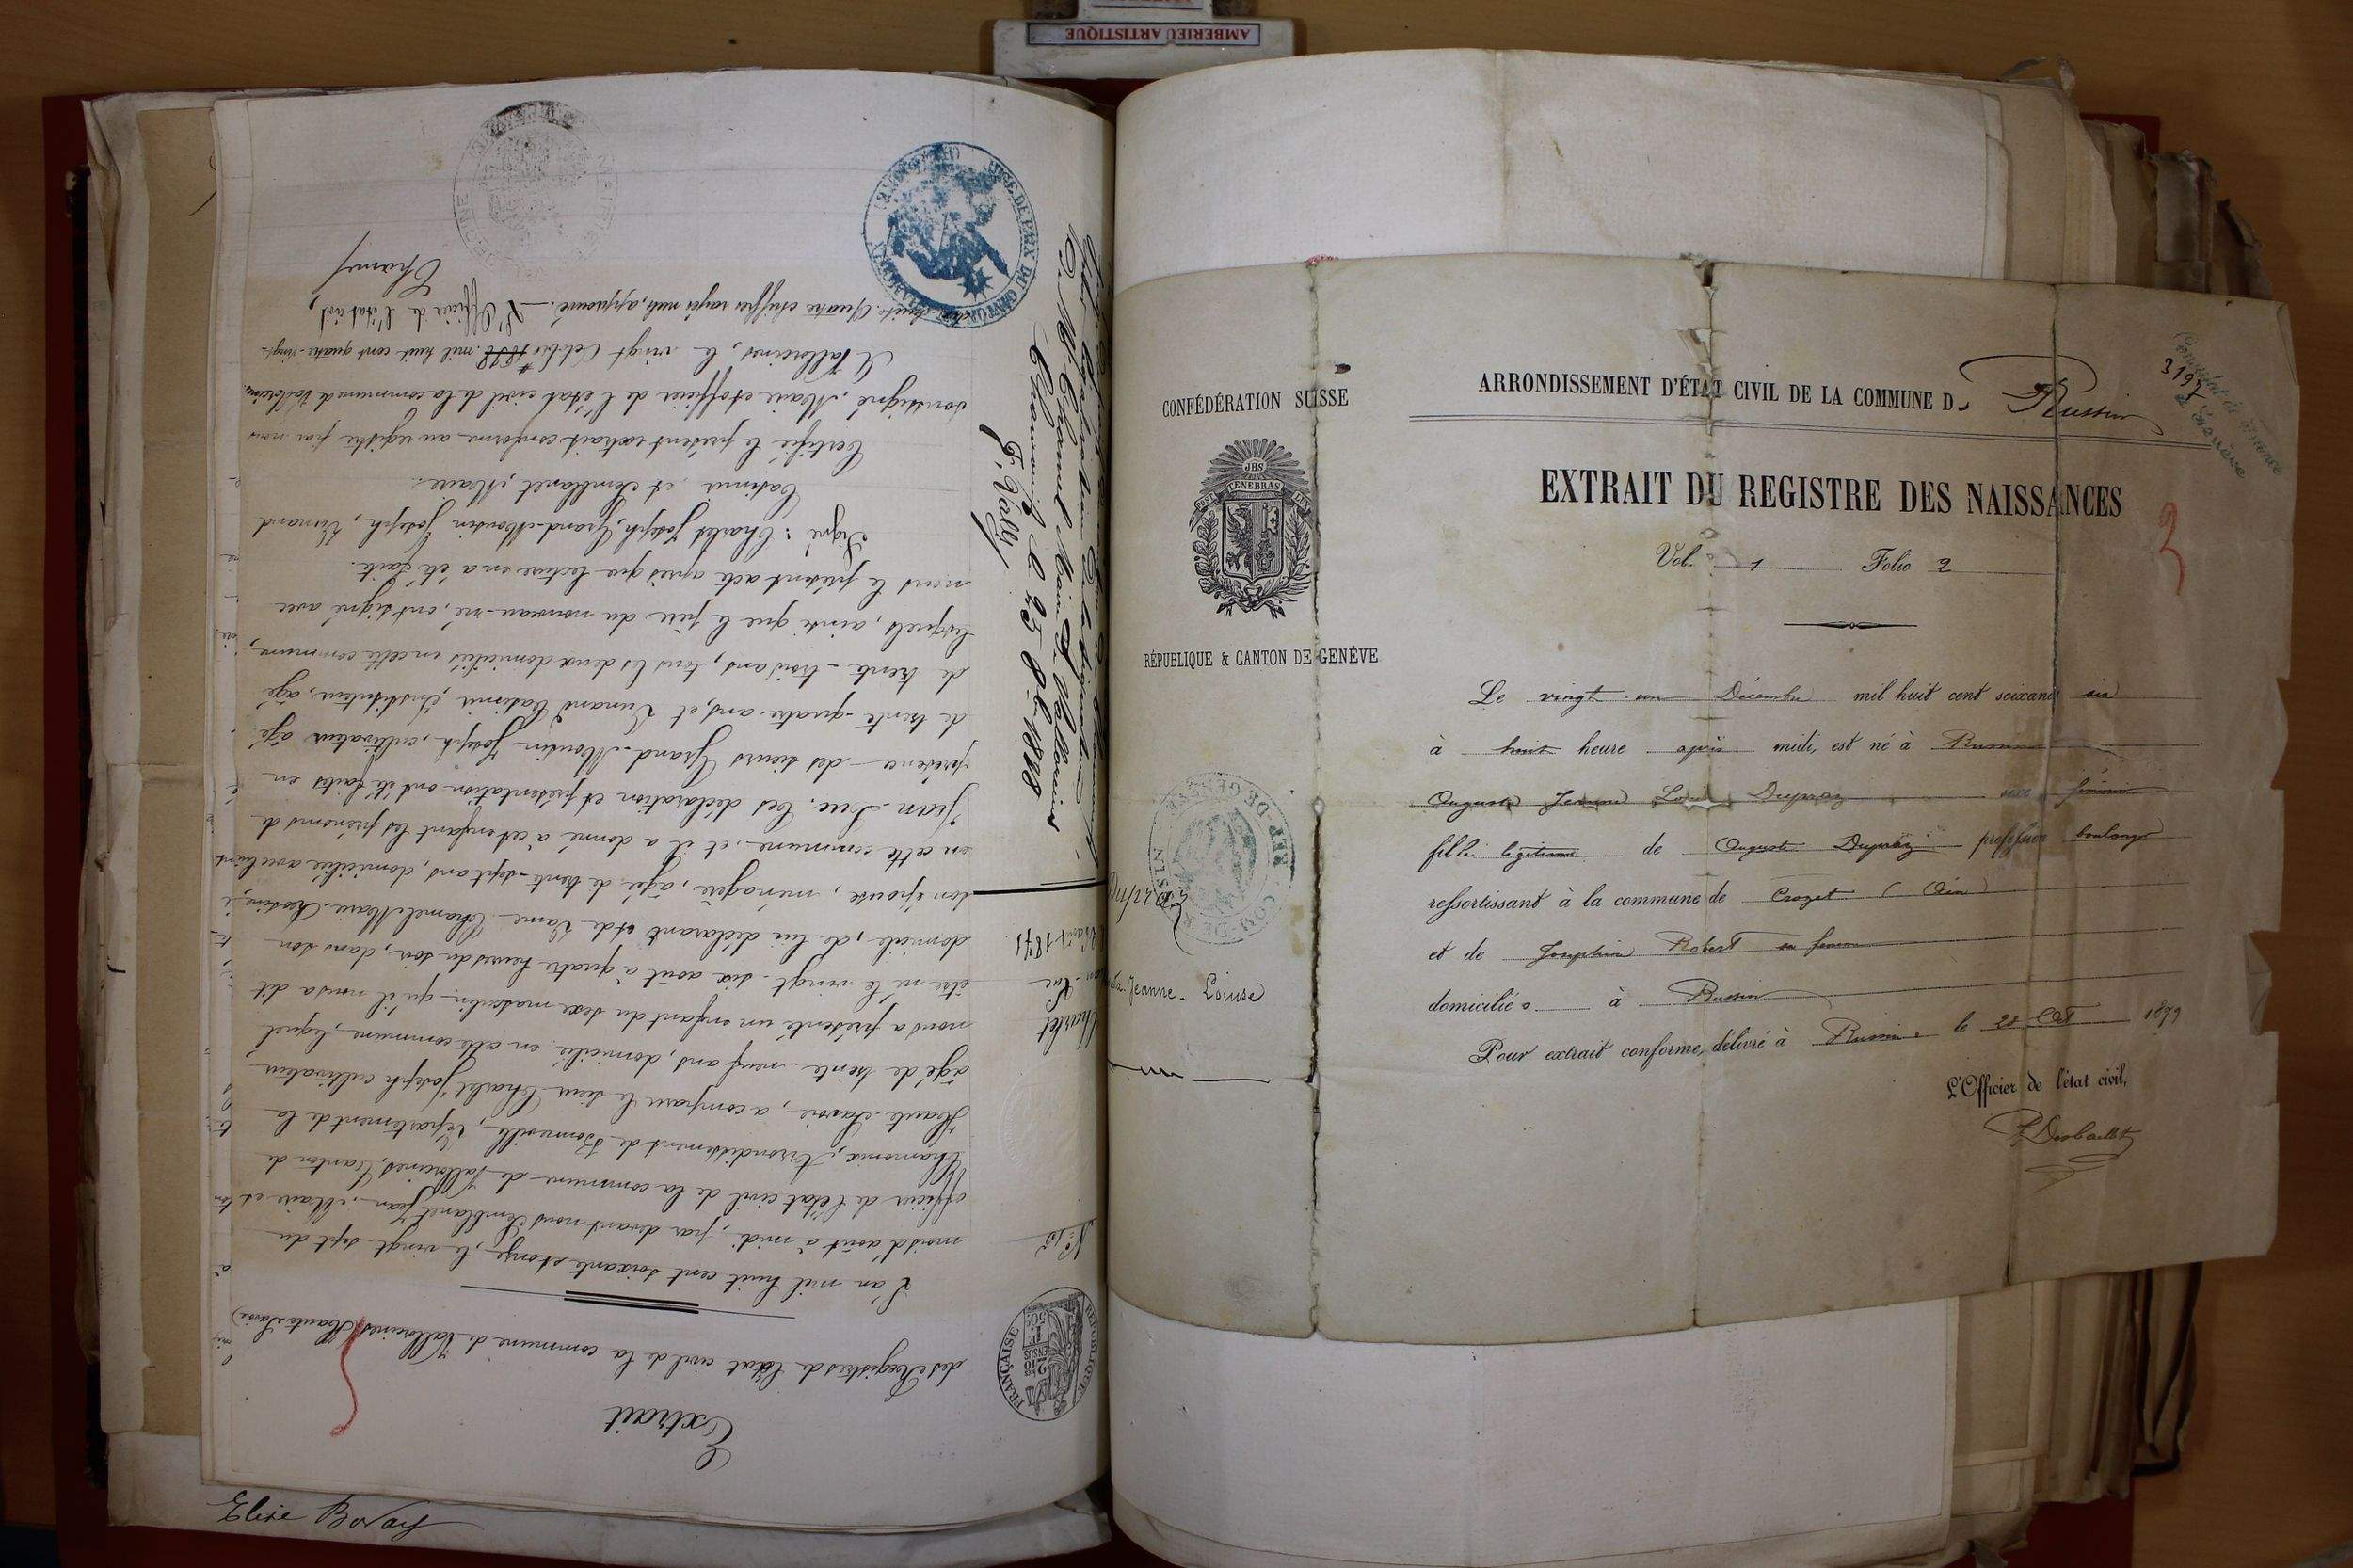 AMBERIEU ARTISTIQUE
Extrait
des Registres de l'état civil de la commune de Vallorcines (Haute-Savoie)
RÉPUBLIQUE FRANÇAISE
N° 15
L'an mil huit cent soixante et onze, le vingt sept du
mois d'août à midi, par devant nous Semblanet Jean, Maire et
officier de l'état civil de la commune de Vallorcines, Canton de
Chamonix, Arrondissement de Bonneville, Département de la
Haute-Savoie, a comparu le sieur Charlet Joseph cultivateur
âgé de trente-neuf ans, domicilié en cette commune, lequel
nous a présenté un enfant du sexe masculin qu'il nous a dit
être né le vingt-six août à quatre heures du soir, dans son
domicile, de lui déclarant et de Dame Chamel Marie
son épouse, ménagère, âgée de trente-sept ans, domiciliée avec lui
en cette commune, et il a donné à cet enfant les prénoms de
Jean-Luc. Ces déclaration et présentation ont été faites en
présence des sieurs Grand-Mousin Joseph, cultivateur âgé
de trente-quatre ans, et Casimir, Instituteur, âgé
de trente-trois ans, tous les deux domiciliés en cette commune,
lesquels, ainsi que le père du nouveau-né, ont signé avec
nous le présent acte après que lecture en a été faite.
Signé: Charlet Joseph, Grand-Mousin Joseph,
Casimir, et Semblanet, Maire.
Certifié le présent extrait conforme au registre par nous
soussigné, Maire et officier de l'état civil de la commune de Vallorcines
A Vallorcines, le vingt Octobre 1898 mil huit cent quatre-vingt-
Quatre chiffres rayés nuls, approuvé. L'Officier de l'état civil,
Charlet
Jean-Luc
août 1871
Chamonix le 25 8bre 1898
Elise Bovay
CONFÉDÉRATION SUISSE
JHS
POST TENEBRAS LUX
RÉPUBLIQUE & CANTON DE GENÈVE
Dupraz
Jeanne-Louise
ARRONDISSEMENT D'ÉTAT CIVIL DE LA COMMUNE DE Russin
3197
EXTRAIT DU REGISTRE DES NAISSANCES
Vol. 1 Folio 2
2
Le vingt-un Décembre mil huit cent soixante six
à huit heure après midi, est né à Russin
Auguste Jeanne Louise Dupraz sexe féminin
fille légitime de Auguste Dupraz profession boulanger
ressortissant à la commune de Crozet (Ain)
et de Josephine Robert sa femme
domiciliés à Russin
Pour extrait conforme, délivré à Russin, le 28 Oct 1899
L'Officier de l'état civil,
Desbaillet